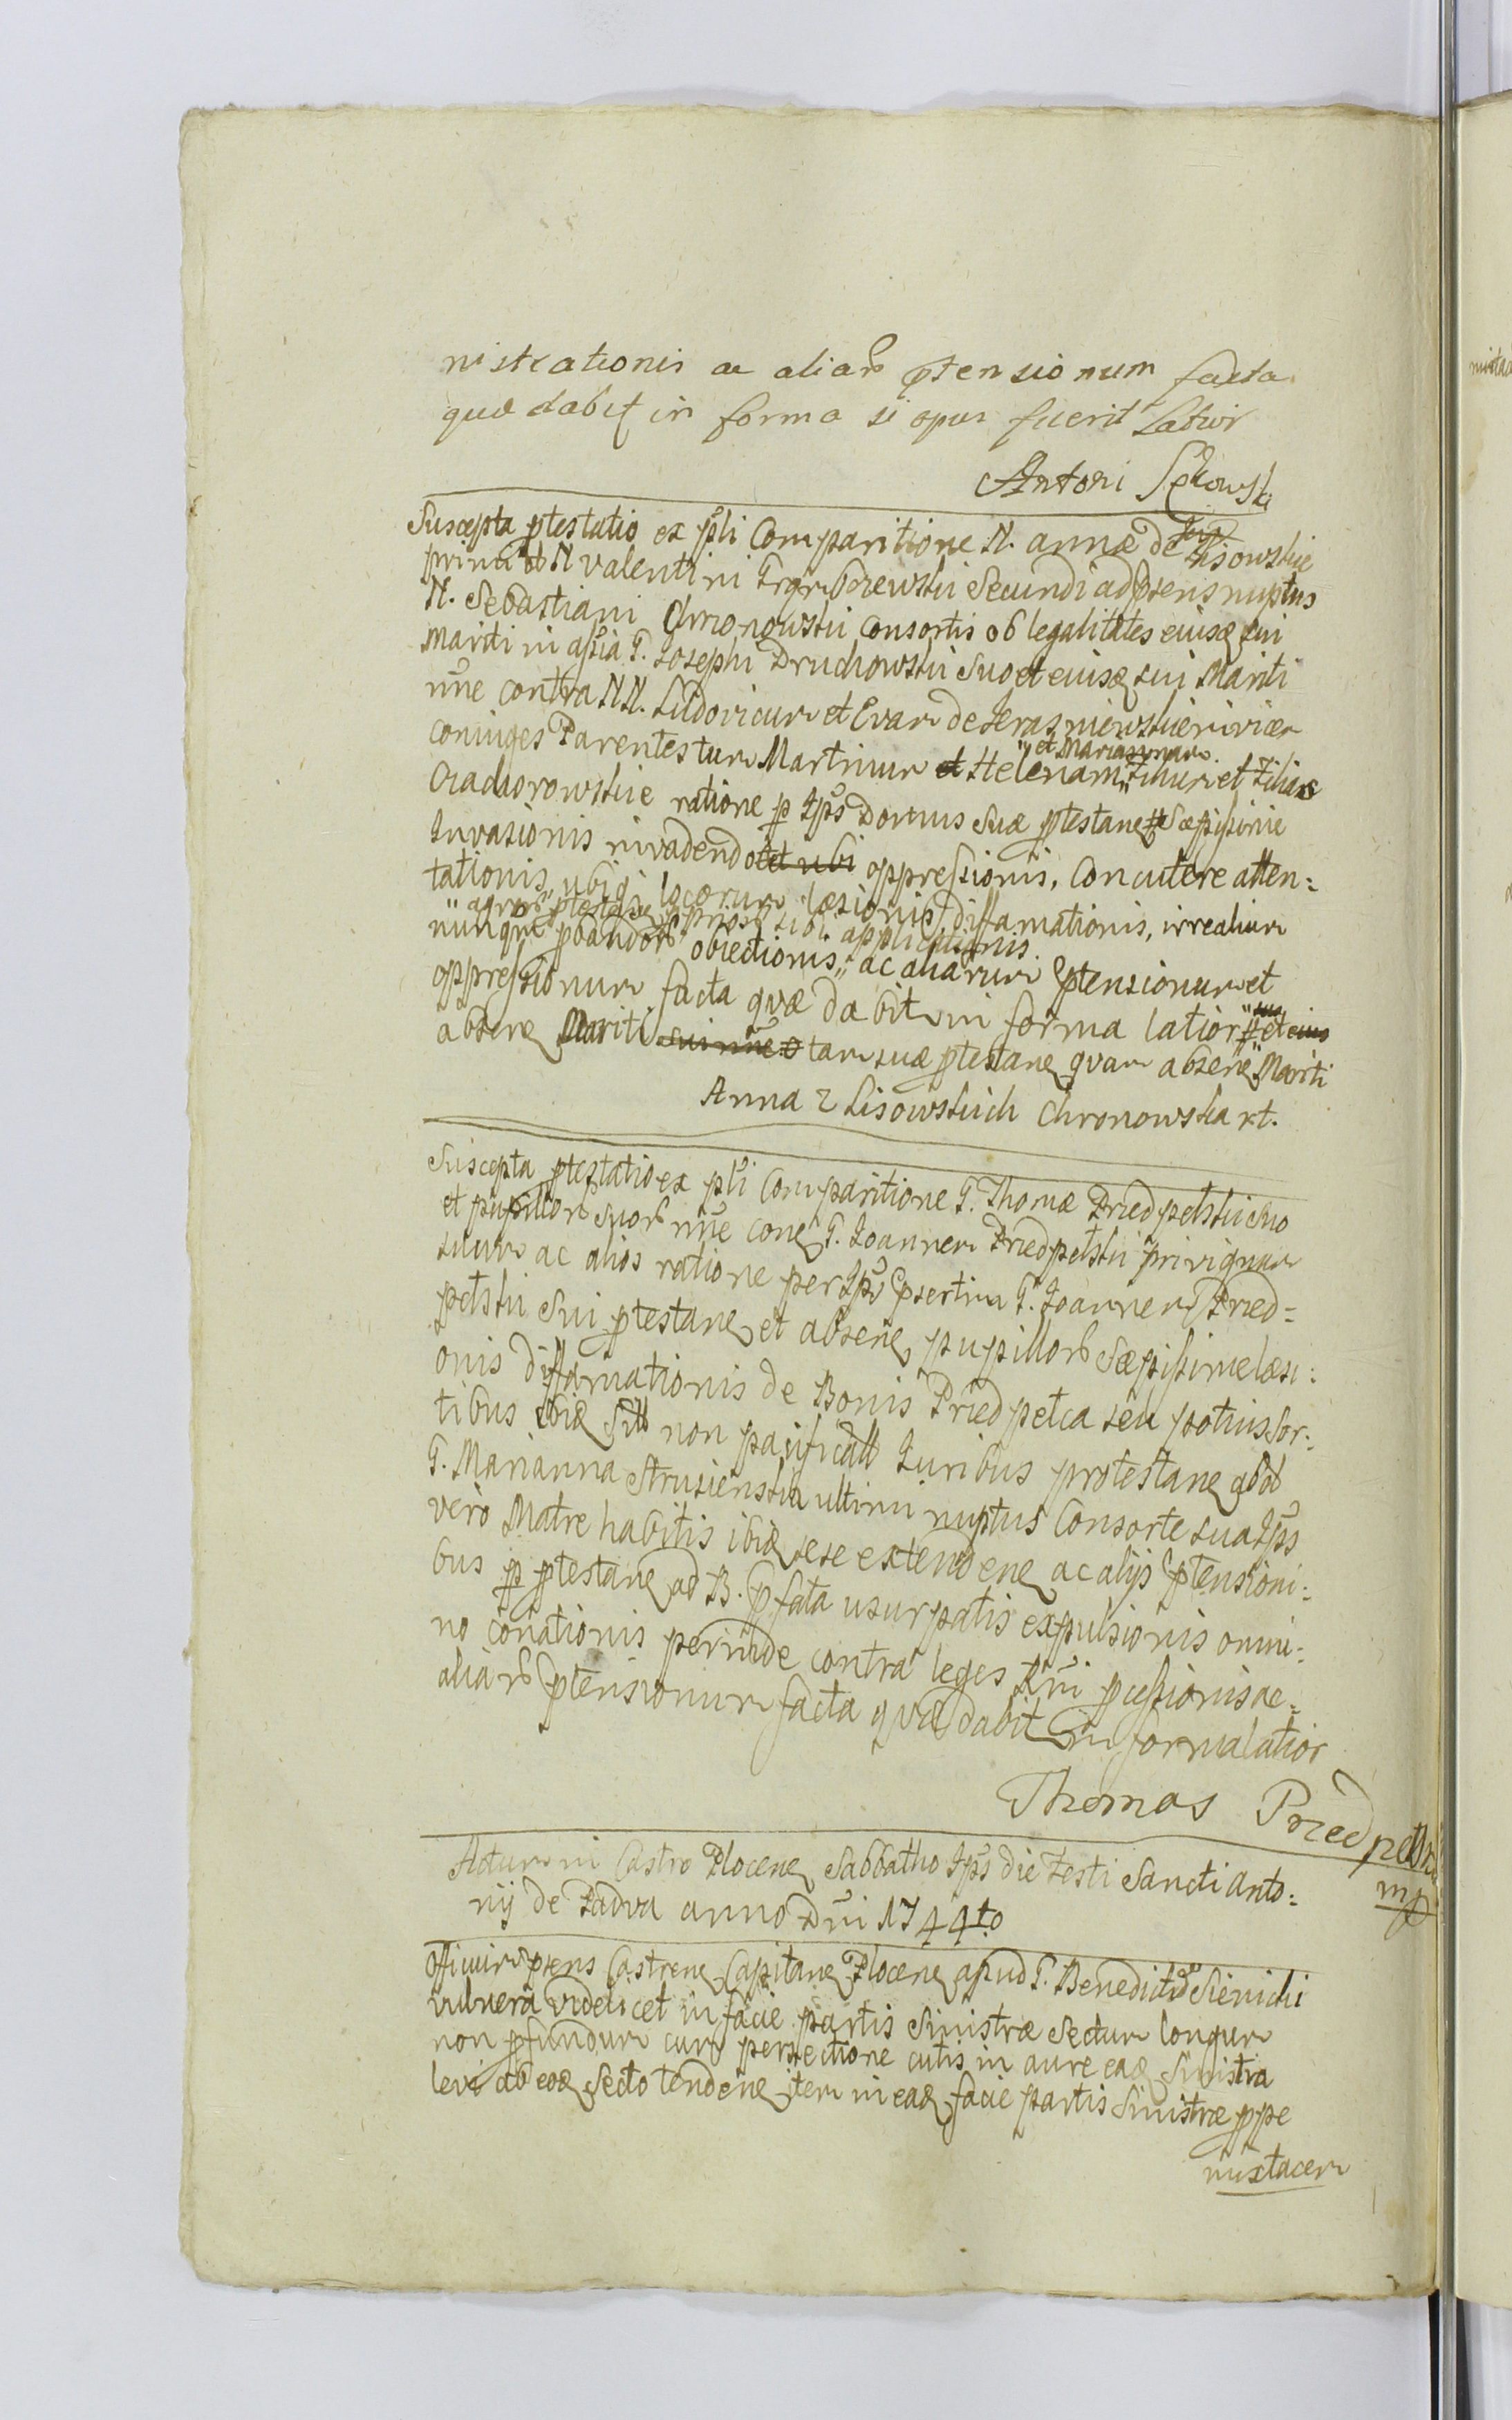 nistrationis ac aliarũ ptensionum facta
quæ dabit in forma si opus fuerit Latior
Antoni Sękowski
Suscepta ptestatio ex psli Comparitione N. annæ de Lisowskie
primi N Valentini Secundi ad psens nuptus
N. Sebastiani Chronowski Consortis ob legalitates eiusq sui
Mariti in assia G. Josephi Druchowski suo et eiusq sui Mariti
nñe contra NN. Ludovicum et Evam de
coniuges Parentes tum Martinum et Helenam "et Mariannam" Filium et Filias
Ciachorowskie ratione p Ipsõs Domus suæ ptestane Sæpissime
Invasionis invadendo et ubi oppressionis, Concutere atten:
tationis ubiq locorum læsionis diffamationis, irrealium
nunqm pbandorũ obiectionis "agrorũ ptestane sibi applicationis" ac aliarum ptensionum et
oppressionum facta quæ dabit in forma latior et eius
absene Mariti sui nñe tam suæ ptestane quam absene Mariti
Anna z Lisowskich Chronowska xt.
Suscepta ptestatio ex psli Comparitione G. Thomæ Priedpetski suo
et pupillorũ suorũ nñe cone G. Joannem Priedpetski privignum
suum ac alios ratione per Ipsõs psertim G. Joannem Pried=
petski sui ptestane et absene pupillorũ Sæpissime læsi:
onis diffamationis de Bonis Priedpetca seu potius Sor:
tibus ibiq non pacificatt Juribus protestane
G. Marianna Strusienska ultimi nuptus Consorte sua Ipsõs
vero Matre habitis ibiq sese extendene ac alijs ptensioni:
bus p ptestane ad B. pfata usurpatis expulsionis omni:
no conationis perinde contra leges Dñi pcessionis ac=
aliarũ ptensionum facta quæ dabit in forma latior
Thomas Priedpetski
mp
Actum in Castro Plocene Sabbatho Ipsõ die Festi Sancti Anto:
nij de Padva anno Dñi 1744to
Officium psens Castrene Capitane Plocene apud G. Benedictũ Sienicki
vulnera videlicet in facie partis sinistræ sectum longum
non pfundum cum persectione cutis in aure eaq sinistra
levi ab eoq secto tendene item in eaq facie partis sinistræ ppe
mustacem